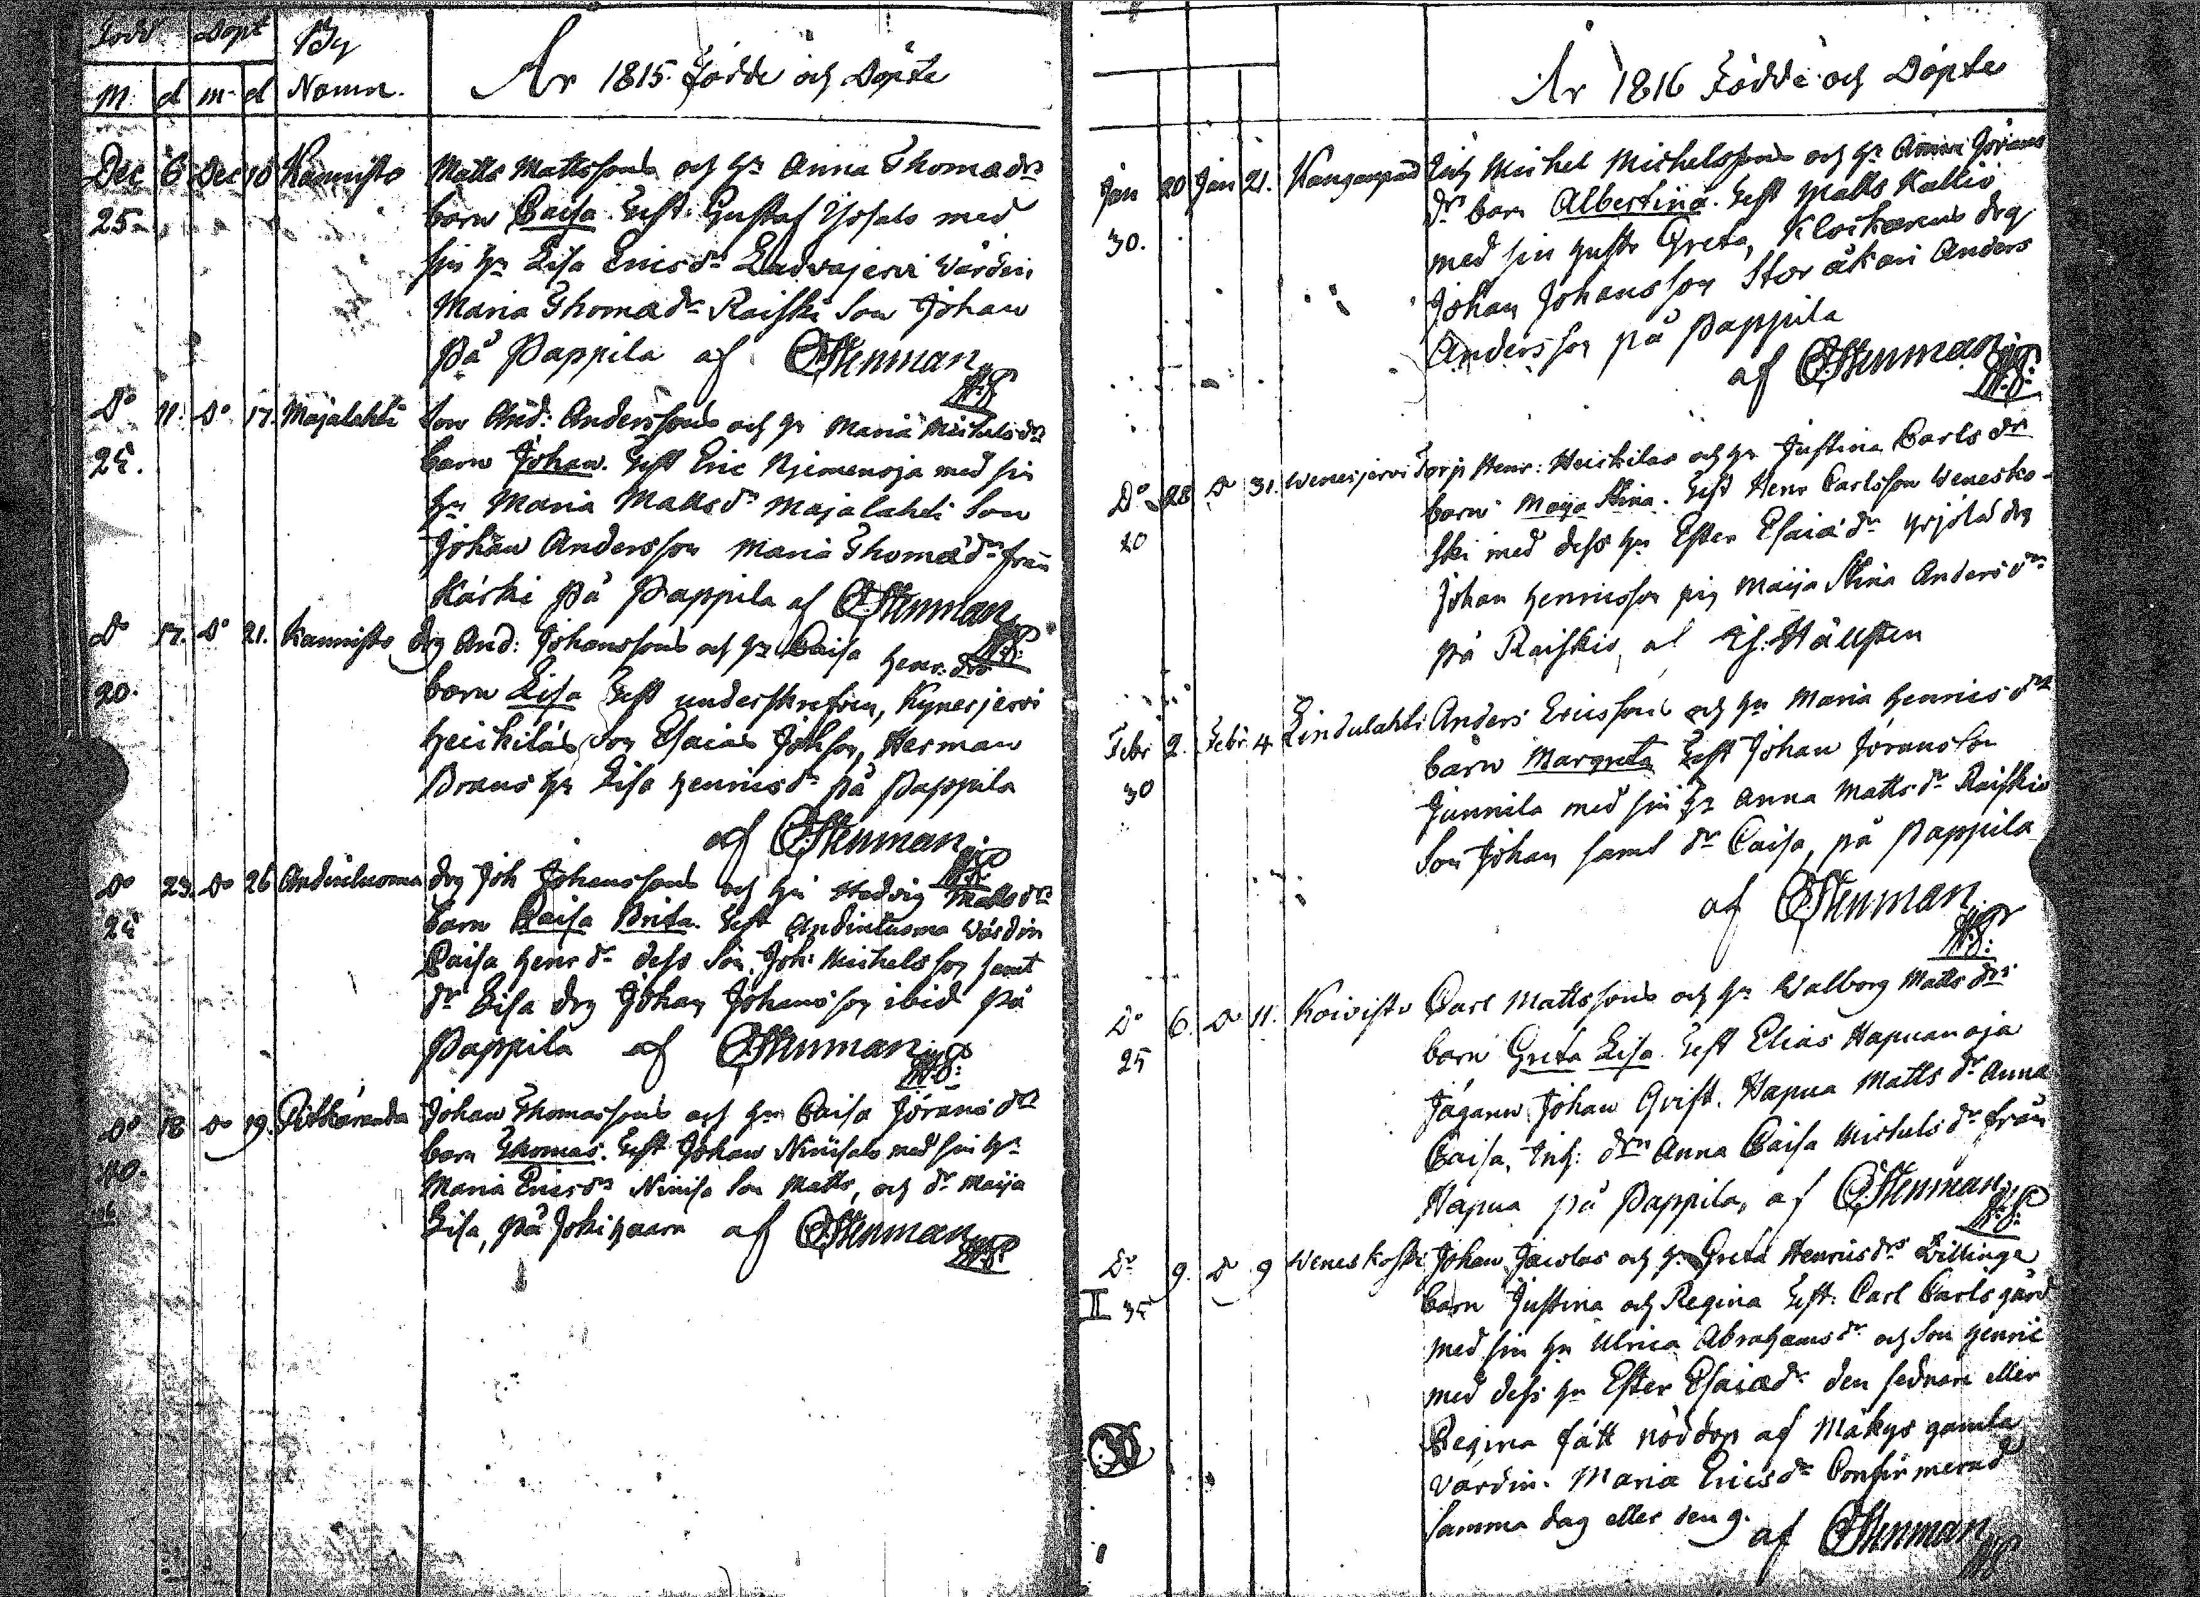 Född Döpt By
M d m d Namn.
År 1815 Födde och Döpte
Dec 6 Dec 10 Kannisto Matts Mattssons och hu Anna Thomædr
25 barn Caisa. Test: Gustaf med
sin hu Lisa Ericsdr Ladvajervi Värdin
Maria Thomædr Raiski Son Johan
på Pappila af C Stenman
V.P.
Do 11. Do 17. Majalahti Son And: Anderssons och hu Maria Michelsdr
25. barn Johan. Test Eric med sin
hu Maria Mattsdr Majalahti Son
Johan Andersson Maria Thomædr från
Kárki på Pappila af C Stenman
V.P.
Do 17. Do 21. Kannisto drg And: Johanssons och hu Caisa Henr. dr
20. barn Lisa Test underskrefven, Kynesjervi
Heickilás Son Esaias Johsson, Herman
Brans hu Lisa Henricsdr på Pappila
af C Stenman
V.P.
Do 23. Do 26 Andinluoma drg Joh Johanssons och hu Hedvig Mattsdr
25 barn Caisa Brita. Test Andinluoma Värdin
Caisa Henrdr dess Son Joh: Michelsson samt
dr Lisa drg Johan Johansson ibid på
Pappila af C Stenman
V.P.
Do 18 Do 19. Pitkäranda Johan Thomassons och hu Caisa Jöransdr
40. barn Thomas. Test Johan Niniisalo med sin hu
Maria Ericsdr Son Matts, och dr Maija
Lisa, på af C Stenman
V.P.
År 1816 Födde och Döpte
Jan 20 Jan 21. Kanganpää Inh Michel Michelssons och hu Anna Jörans
30. dr barn Albertina. Test Matts Kallio
med sin hustr Greta, Klockarens drg
Johan Johansson Storåkari Anders
Andersson på Pappila
af C Stenman
V.P.
Do 28 Do 31. Wenesjervi Torp Henr: Heickilas och hu Justina Carlsdr
20 barn Maja Stina. Test Henr Carlsson Wenesko-
ski med dess hu Ester Esaiædr Yrjölä drg
Johan Henricsson pig Maija Stina Andersdr
på Raiskio, af Hällsten
Febr 2. Febr. 4 Lindulahti Anders Ericssons och hu Maria Henricsdr
30 barn Margreta Test Johan Jöransson
Junnila med sin hu Anna Mattsdr Raiskio
Son Johan samt dr Caisa, på Pappila
af C Stenman
V.P.
Do 6. Do 11. Koivisto Carl Mattssons och hu Walborg Mattsdr
25 barn Greta Lisa. Test Elias Hapuanoja
Jägaren Johan Grift. Hapua Mattsdr Anna
Caisa, Inh: drn Anna Caisa Michelsdr från
Hapua på Pappila, af C Stenman
V.P.
Do 9. Do 9 Weneskoski Johan och hu Greta Henricsdr Tvillinge
II 35 barn Justina och Regina Test: Carl Carlsgård
med sin hu Ulrica Abrahamsdr och Son Henric
med dess hu Ester Esaiædr den sednare eller
Regina fått nöddop af Mäkys gamla
värdin. Maria Ericsdr Confirmerad
samma dag eller den 9.
af C Stenman
V.P.